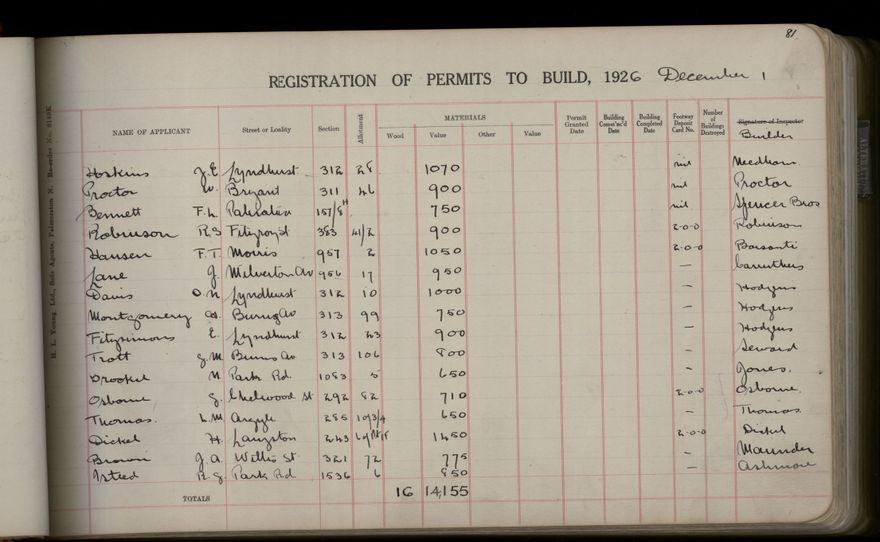 81
REGISTRATION OF PERMITS TO BUILD, 1926 December 1
NAME OF APPLICANT Street or Loality Section Allotment MATERIALS Permit Granted Date Building Comm'nc'd Date Building Completed Date Footway Deposit Card No. Number of Buildings Destroyed Signature of Inspector
Wood Value Other Value Builder
Hoskins J.E Lyndhurst 312 28 1070 nil Needham
Proctor W. Bryant 311 46 900 nil Proctor
Bennett F.L 157/8 750 nil Spencer Bros
Robinson R.S Fitzroy st 383 41/2 900 2-0-0 Robinson
Hansen F.T. Morris 957 2 1050 2-0-0
Lane J. Milverton Av 956 17 950 — Carruthers
Davis O.N Lyndhurst 312 10 1000 — Hodgens
Montgomery A. Burns Av 313 99 750 — Hodgens
Fitzsimons E. Lyndhurst 312 23 900 — Hodgens
Trott G.M Burns Av 313 106 800 — Seward
N Park Rd 1083 5 650 — Jones.
Osborne G. Chelwood St 292 82 710 2-0-0 Osborne
Thomas. L.M Argyle 285 10/3/4 650 — Thomas.
Dickel H. Langston 243 1450 2-0-0 Dickel
Brown J.A Willis St 321 72 775 — Maunder
Isted R.G Park Rd 1536 6 850 — Ashmore
TOTALS 16 14,155
H. L. Young Ltd., Sole Agents, Palmerston N. Re-order No.